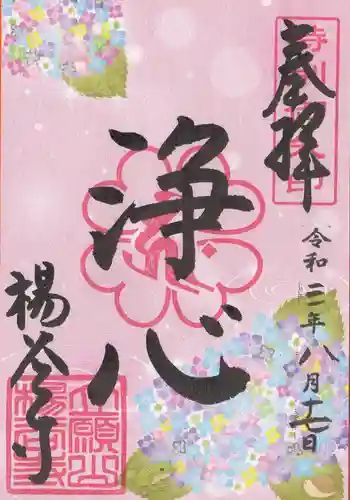 奉拝
令和二年八月十七日
浄心
楊谷寺